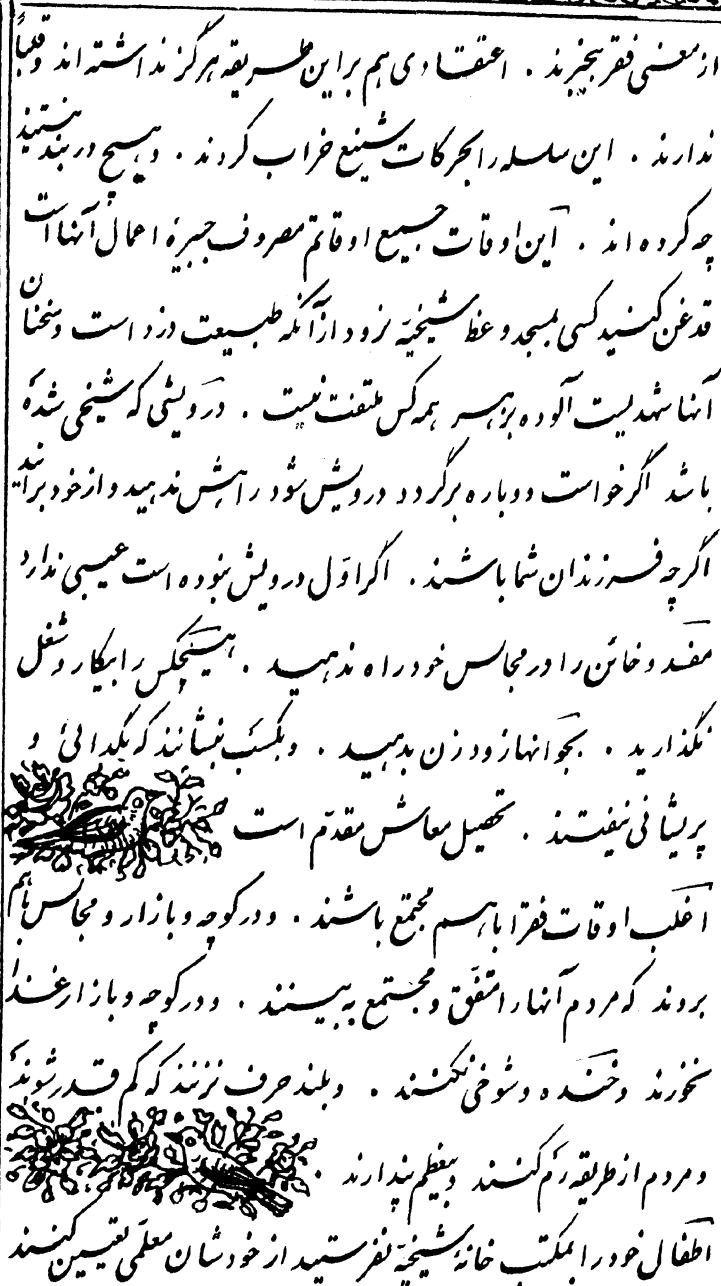 از معنی فقر بیخبرند . اعتقادی هم بر این طریقه هرگز نداشته اند و قلباً
ندارند . این سلسله را بحرکات شنیع خراب کردند . و هیچ در بند نیستند
چه کرده اند . این اوقات جمیع اوقاتم مصروف جبیرهٔ اعمال آنها است
قدغن کنید کسی بمسجد وعظ شیخیّه نرود از آنکه طبیعت دزد است و سخنان
آنها شهدیست آلوده بزهر همه کس ملتفت نیست . درویشی که شیخی شدهٔ
باشد اگر خواست دوباره برگردد درویش شود راهش ندهید و از خود برانید
اگرچه فرزندان شما باشند . اگر اوّل درویش نبوده است عیبی ندارد
مفسد و خائن را در مجالس خود راه ندهید . هیچکس را بیکار و شغل
نگذارید . بجوانها زود زن بدهید . و بکسب بنشانند که بگدائی و
پریشانی نیفتند . تحصیل معاش مقدّم است
اغلب اوقات فقرا با هم مجتمع باشند . و در کوچه و بازار و مجالس باهم
بروند که مردم آنها را متفّق و مجتمع به بینند . و در کوچه و بازار غذا
نخورند و خنده و شوخی نکنند . و بلند حرف نزنند که کم قدر شوند
و مردم از طریقه رم کنند و بیعظم پندارند .
اطفال خود را بمکتب خانهٔ شیخیّه نفرستید از خودشان معلّمی تعیین کنند